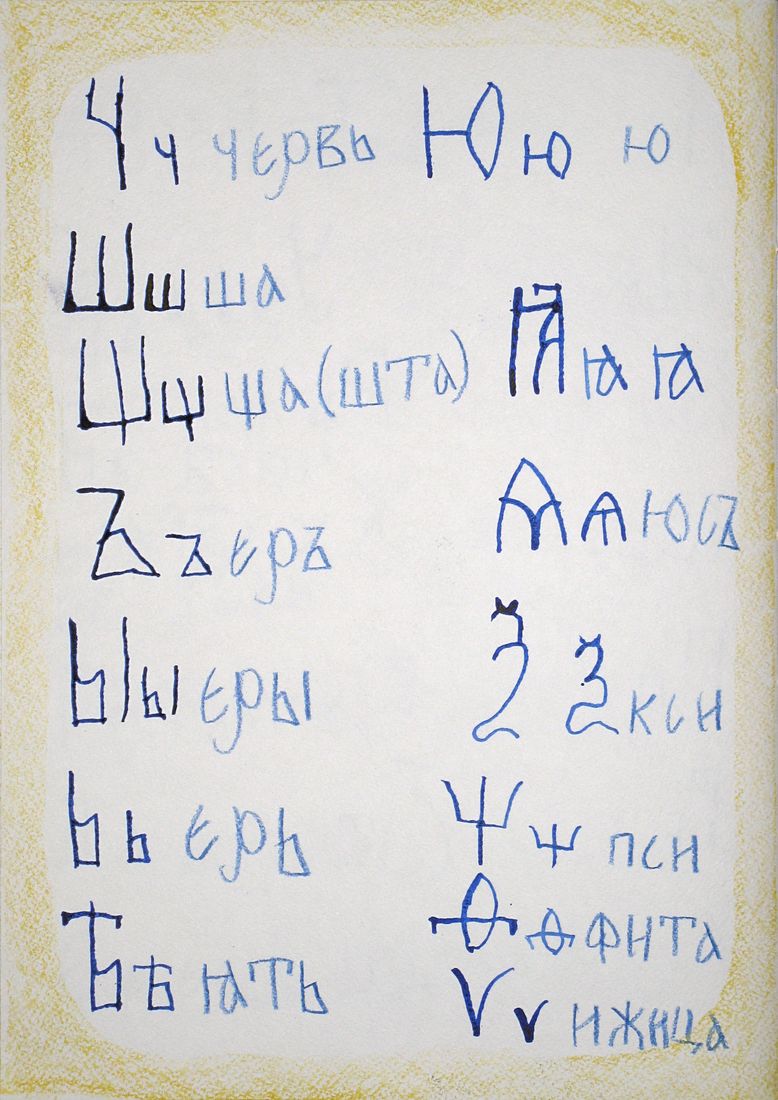 Ч ч червь
Ш ш ша
Щ щ ща (шта)
Ъ ъ еръ
Ы ы еры
Ь ь ерь
Ѣ ѣ ꙗть
Ю ю ю
Ꙗ ꙗ ꙗ
Ѧ ѧ юсъ
Ѯ ѯ кси
Ѱ ѱ пси
Ѳ ѳ фита
Ѵ ѵ ижица